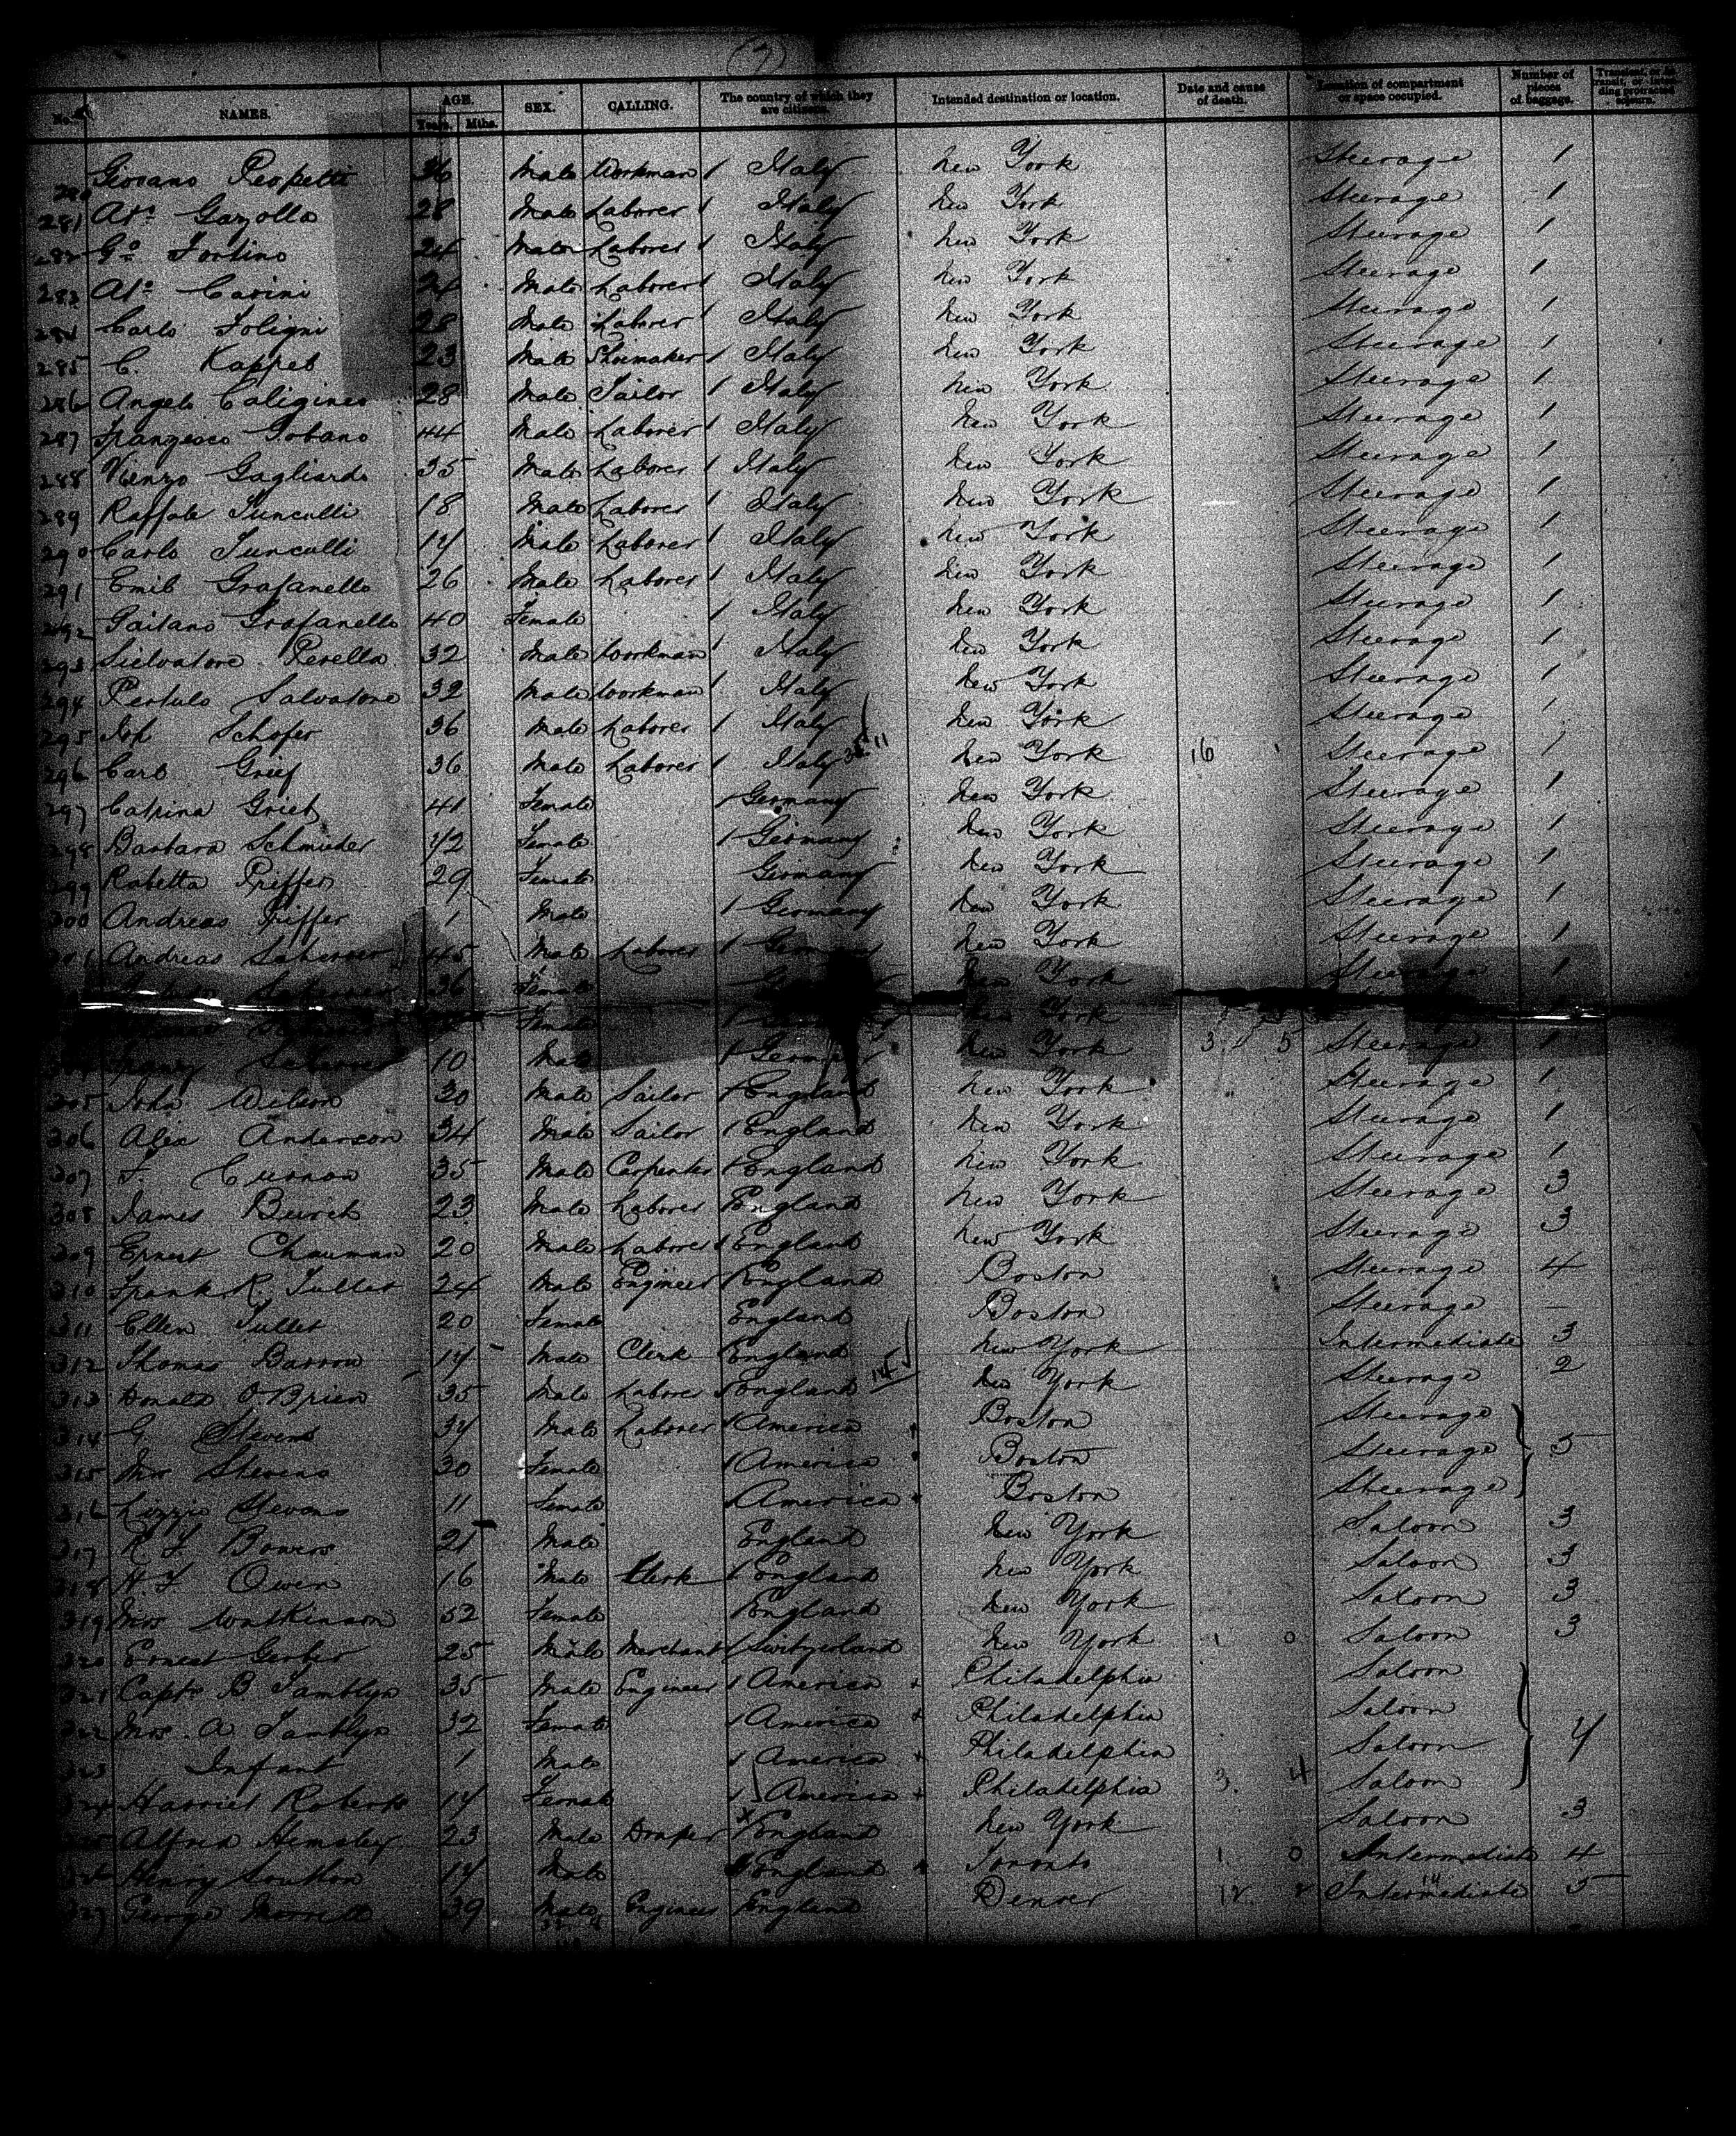 (7)
No. NAMES. AGE. Years. Mths. SEX. CALLING. The country of which they are citizens. Intended destination or location. Date and cause of death. Location of compartment or space occupied. Number of pieces of baggage.
280 36 Male Workman 1 Italy New York Steerage 1
281 Ato Gazolla 28 Male Laborer 1 Italy New York Steerage 1
282 Go Fortino 24 Male Laborer 1 Italy New York Steerage 1
283 Ato Carini 24 Male Laborer 1 Italy New York Steerage 1
284 Carlo Foligni 28 Male Laborer 1 Italy New York Steerage 1
285 C. Kappeb 23 Male Shoemaker 1 Italy New York Steerage 1
286 Angelo 28 Male Tailor 1 Italy New York Steerage 1
287 Gobano 44 Male Laborer 1 Italy New York Steerage 1
288 Gagliardo 35 Male Laborer 1 Italy New York Steerage 1
289 Raffale Tunculli 18 Male Laborer 1 Italy New York Steerage 1
290 Carlo Tunculli 17 Male Laborer 1 Italy New York Steerage 1
291 Emil Grafanello 26 Male Laborer 1 Italy New York Steerage 1
292 Gaitano Grafanello 40 Female 1 Italy New York Steerage 1
293 Perella 32 Male Workman 1 Italy New York Steerage 1
294 Salvatore 32 Male Workman 1 Italy New York Steerage 1
295 Schofer 36 Male Laborer 1 Italy New York Steerage 1
296 Carl Grief 36 Male Laborer 1 Italy New York 16 Steerage 1
297 Catrina Grieb 41 Female 1 Germany New York Steerage 1
298 Barbara Schmieder 42 Female 1 Germany New York Steerage 1
299 Priffer 29 Female Germany New York Steerage 1
300 Andreas Priffer 1 Male 1 Germany New York Steerage 1
301 Andreas 45 Male Laborer 1 New York Steerage 1
36 Female New York Steerage 1
Female New York
10 Male 1 Germany New York 3 5 Steerage 1
305 John Wilson 30 Male Sailor 1 England New York Steerage 1
306 Alex Anderson 34 Male Sailor 1 England New York Steerage 1
307 F. Curnow 35 Male Carpenter 1 England New York Steerage 1
308 James Burch 23 Male Laborer England New York Steerage 3
309 Ernest Chauman 20 Male Laborer 1 England New York Steerage 3
310 Frank R. Tullet 24 Male Engineer England Boston Steerage 4
311 Ellen Tullet 20 Female England Boston Steerage —
312 Thomas Barrow 17 Male Clerk England New York Intermediate 3
313 Donald O'Brien 35 Male Laborer England 14 New York Steerage 2
314 G Stevens 37 Male Laborer 1 America Boston Steerage
315 Mrs Stevens 30 Female 1 America Boston Steerage 5
316 Lizzie Stevens 11 Female America Boston Steerage
317 Bowers 21 Male England New York Saloon 3
318 Owen 16 Male Clerk 1 England New York Saloon 3
319 Mrs Watkinson 52 Female England New York Saloon 3
320 Ernest Gerber 25 Male Merchant 1 Switzerland New York 1 0 Saloon 3
321 Capt. B. Tamblyn 35 Male Engineer 1 America Philadelphia Saloon
322 Mrs. A. Tamblyn 32 Female 1 America Philadelphia Saloon
323 Infant 1 Male 1 America Philadelphia Saloon 7
324 Harriet Roberts 17 Female 1 America Philadelphia 3 4 Saloon
325 Alfred Hemsley 23 Male Draper England New York Saloon 3
326 Henry Southon 17 Male England Toronto 1 0 Intermediate 4
327 George 39 Male Engineer England Denver Intermediate 5